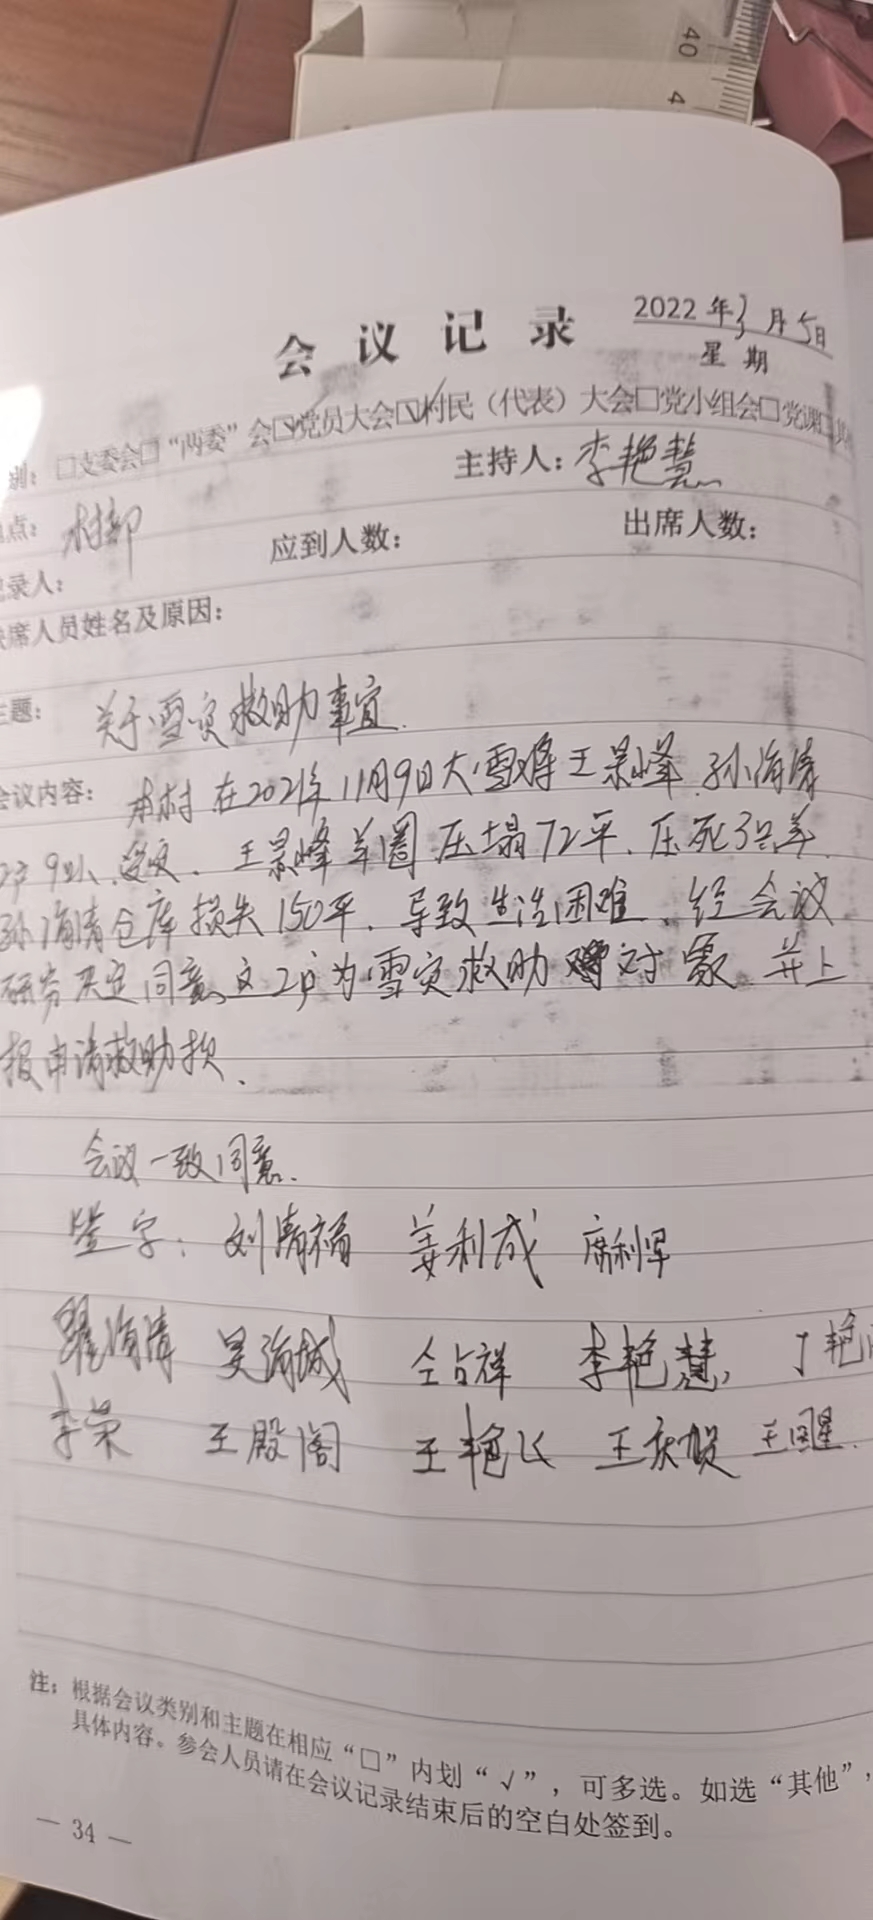 40
4
2022年3月5日
会议记录
星期
别：□支委会□“两委”会☑党员大会☑村民（代表）大会□党小组会□党课□其
主持人：李艳慧
点：村部
应到人数：
出席人数：
录人：
席人员姓名及原因：
题：关于雪灾救助事宜.
会议内容：本村在2021年11月9日大雪将王景峰、孙海清
2户9口人受灾、王景峰羊圈压塌72平、压死3只羊、
孙海清仓库损失150平、导致生活困难、经会议
研究决定同意这2户为雪灾救助对象、并上
报申请救助款、
会议一致同意、
签字：刘清福 姜利成 席利军
翟海清 吴海城 仝占祥 李艳慧 丁艳
李荣 王殿阁 王艳飞 王庆贺 王国星
注：根据会议类别和主题在相应“□”内划“√”，可多选。如选“其他”，
具体内容。参会人员请在会议记录结束后的空白处签到。
— 34 —